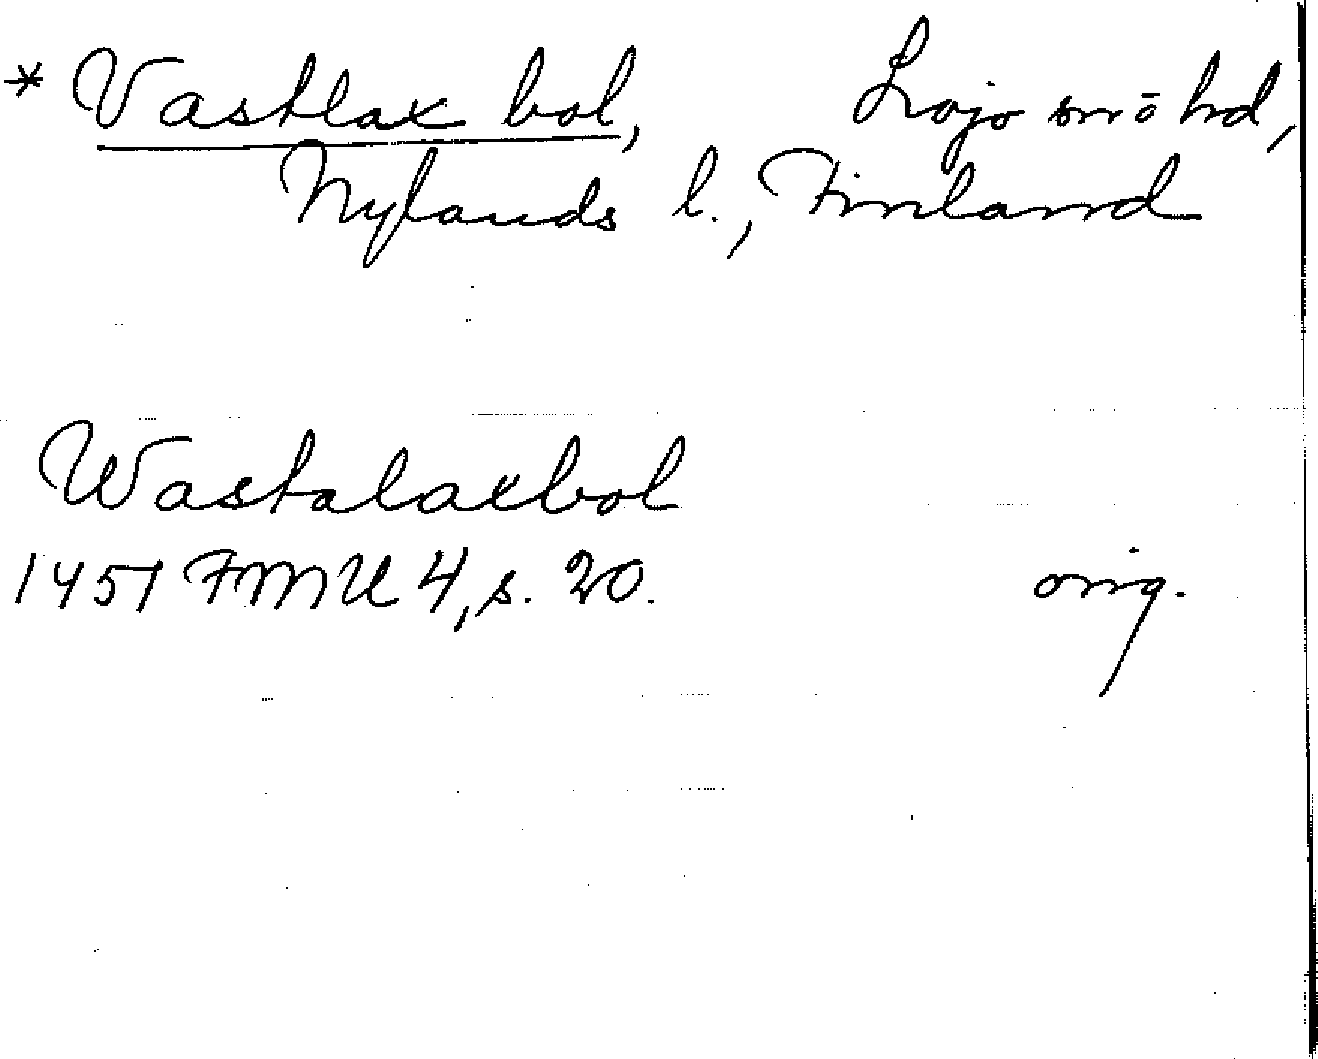 * Vastlax bol, Lojo snö hd,
Nylands l., Finland
Wastalaxbol
1451 FMU 4, s. 20. orig.